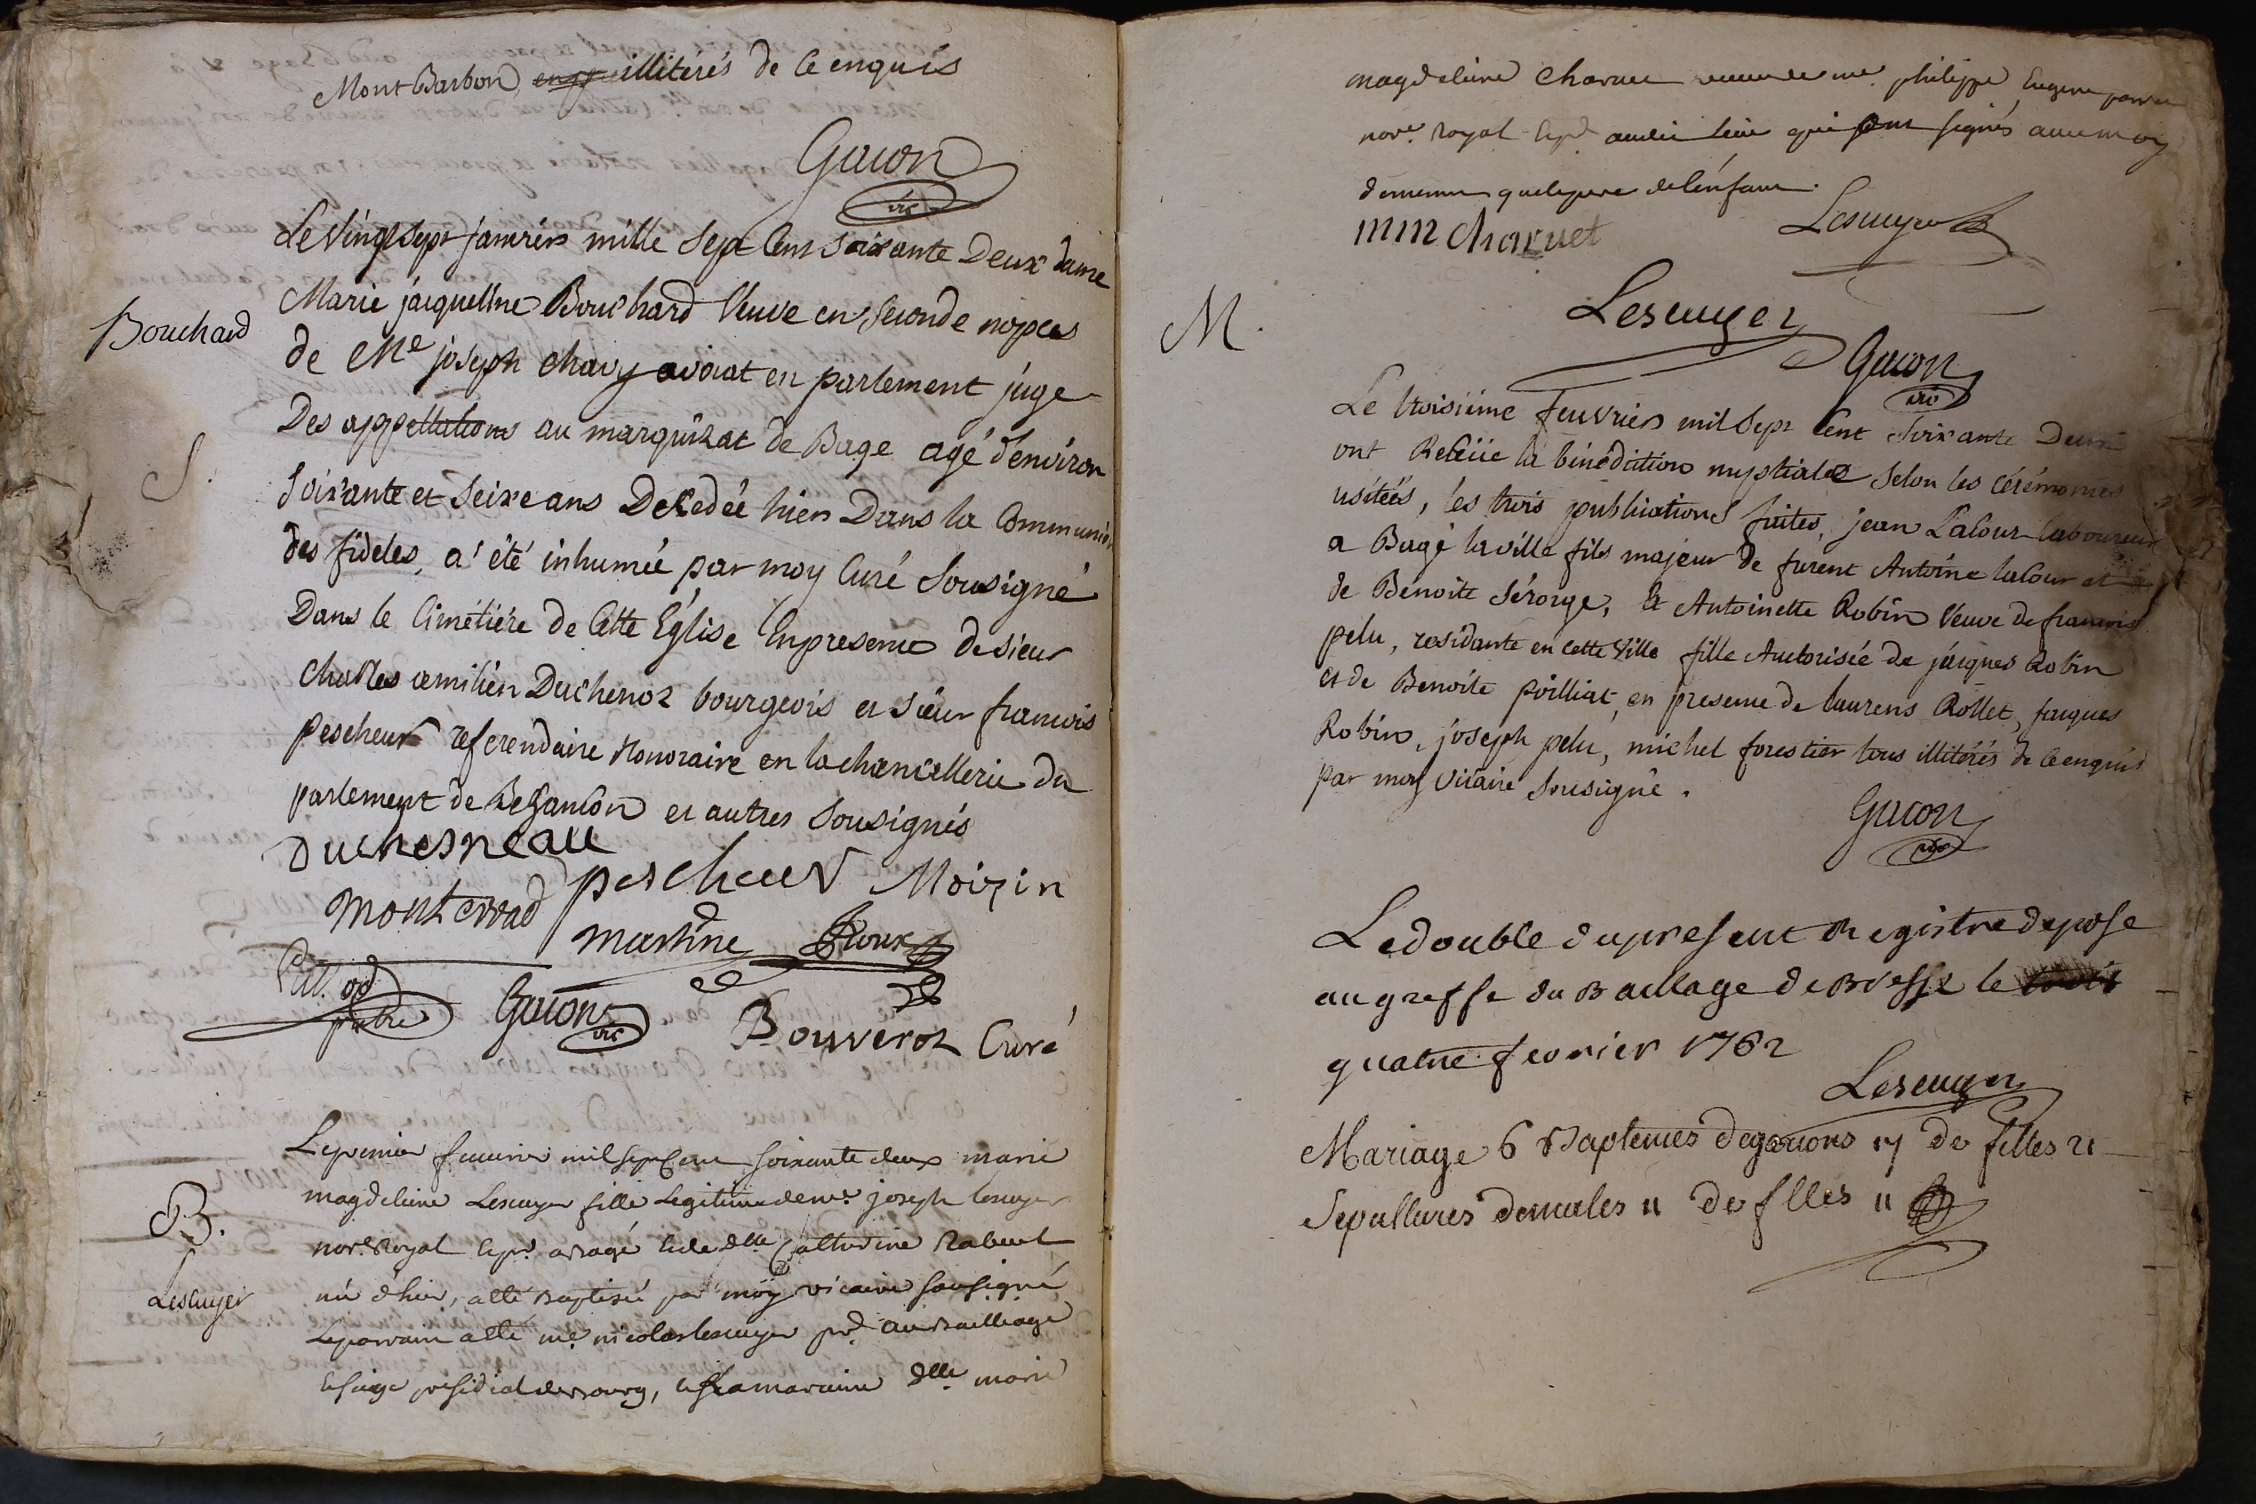 MontBarbon, illitérés de ce enquis
Gacon
vic
Le vingt sept janvier mille sept cent soixante Deux dame
Marie jacqueline Bouchard Veuve en seconde nopces
Bouchard
de Me joseph chavy avocat en parlement juge
Des appellations au marquisat de Bage agé d'environ
S.
soixante et seize ans Decedée hier Dans la Communion
des fideles, a été inhumée par moy Curé sousigné
Dans le Cimétiére de Cette Église En presence de sieur
Charles æmilien Duchenoz bourgeois et sieur francois
pescheur referendaire Honoraire en la chancellerie du
parlement de Besancon et autres sousignés
Duchesneau
pescheur Moizin
montcrad
martine Roux
prbre
Gacon
vic
Bouveroz Curé
Le premier feuvrier mil sept cent soixante deux marie
magdeleine Lescuyer fille Legitime de me. joseph lescuyer
B.
nore. Royal a Bagé et de dlle Catherine
née d'hier, a été Baptisée par moy vicaire sousigné
Lescuyer
Le parrain a été me. nicolas lescuyer pr. au Bailliage
et siege presidial de Bourg, et la maraine dlle. marie
magdeleine Charvet me. philippe Eugene
nore. Royal audit lieu qui ont signés avec moy
de meme que le pere de l'enfant.
mm charvet
Lescuyer
Lescuyer
M.
Gacon
vic
Le troisiéme feuvrier mil sept Cent soixante Deux
ont Recëüe la bénédiction nuptiale selon les cérémonies
usitées, les trois publications faites, jean Lacour laboureur
a Bagé la ville fils majeur de furent Antoine lacour et
de Benoite Sérorge, et Antoinette Robin Veuve de francois
pelu, residante en cette Ville fille Auctorisée de jacques Robin
et de Benoite poilliat, en presence de laurens Rollet, jacques
Robin, joseph pelu, michel forestier tous illitérés de ce enquis
par moy vicaire sousigné.
Gacon
vic
Le double du present Registre depose
au greffe du Bailliage de Bresse le
quatre fevrier 1762
Lescuyer
Mariage 6 Baptemes de garcons 17 de filles 21
Sepultures de males 11 de filles 11